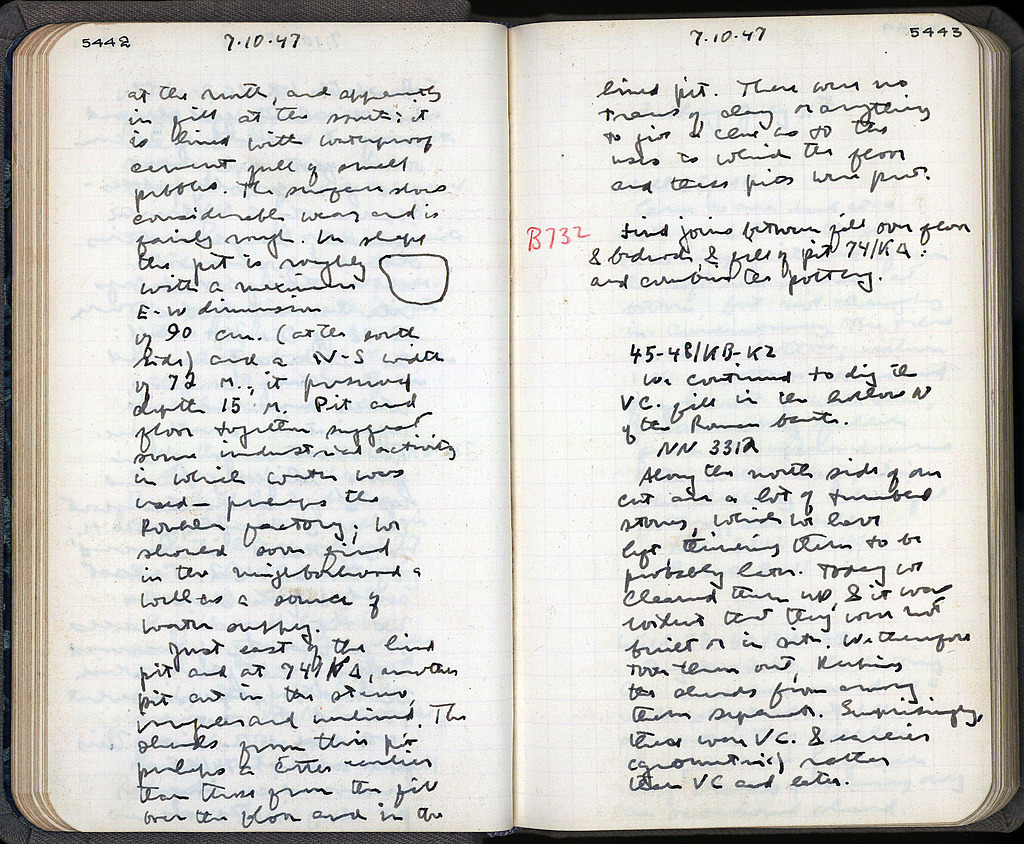 5442
7.10.47
at the north, and apparently
in fill at the south: it
is lined with waterproof
cement full of small
pebbles. The surface shows
considerable wear and is
fairly rough. In shape
the pit is roughly
with a maximum
E-W dimension
of 90 cm. (at the south
side) and a N-S width
of 72 M.; it preserved
depth 15 M. Pit and
floor together suggest
some industrial activity
in which water was
used – perhaps the
factory; we
should soon find
in the neighborhood a
well as a source of
water supply.
Just east of the lined
pit and at 74/ΚΑ, another
pit cut in the stereo,
irregular and unlined. The
sherds from this pit
perhaps a little earlier
than those from the fill
over the floor and in the
5443
7.10.47
lined pit. There were no
traces of clay or anything
to give a clue as to the
uses to which the floor
and these pits were put.
B732
Find joins between fill over floor
& bedrock & fill of pit 74/ΚΑ.
and combine the pottery.
45-48/ΚΒ-ΚΖ
We continued to dig the
V.C. fill in the hollow N
of the Roman baths.
NN 3312
Along the north side of our
cut are a lot of tumbled
stones, which we have
left, thinking them to be
probably later. Today we
cleaned them up, & it was
evident that they were not
built or in situ. We therefore
took them out, keeping
the sherds from among
them separate. Surprisingly,
these were V.C. & earlier
(geometric) rather
than V.C. and later.